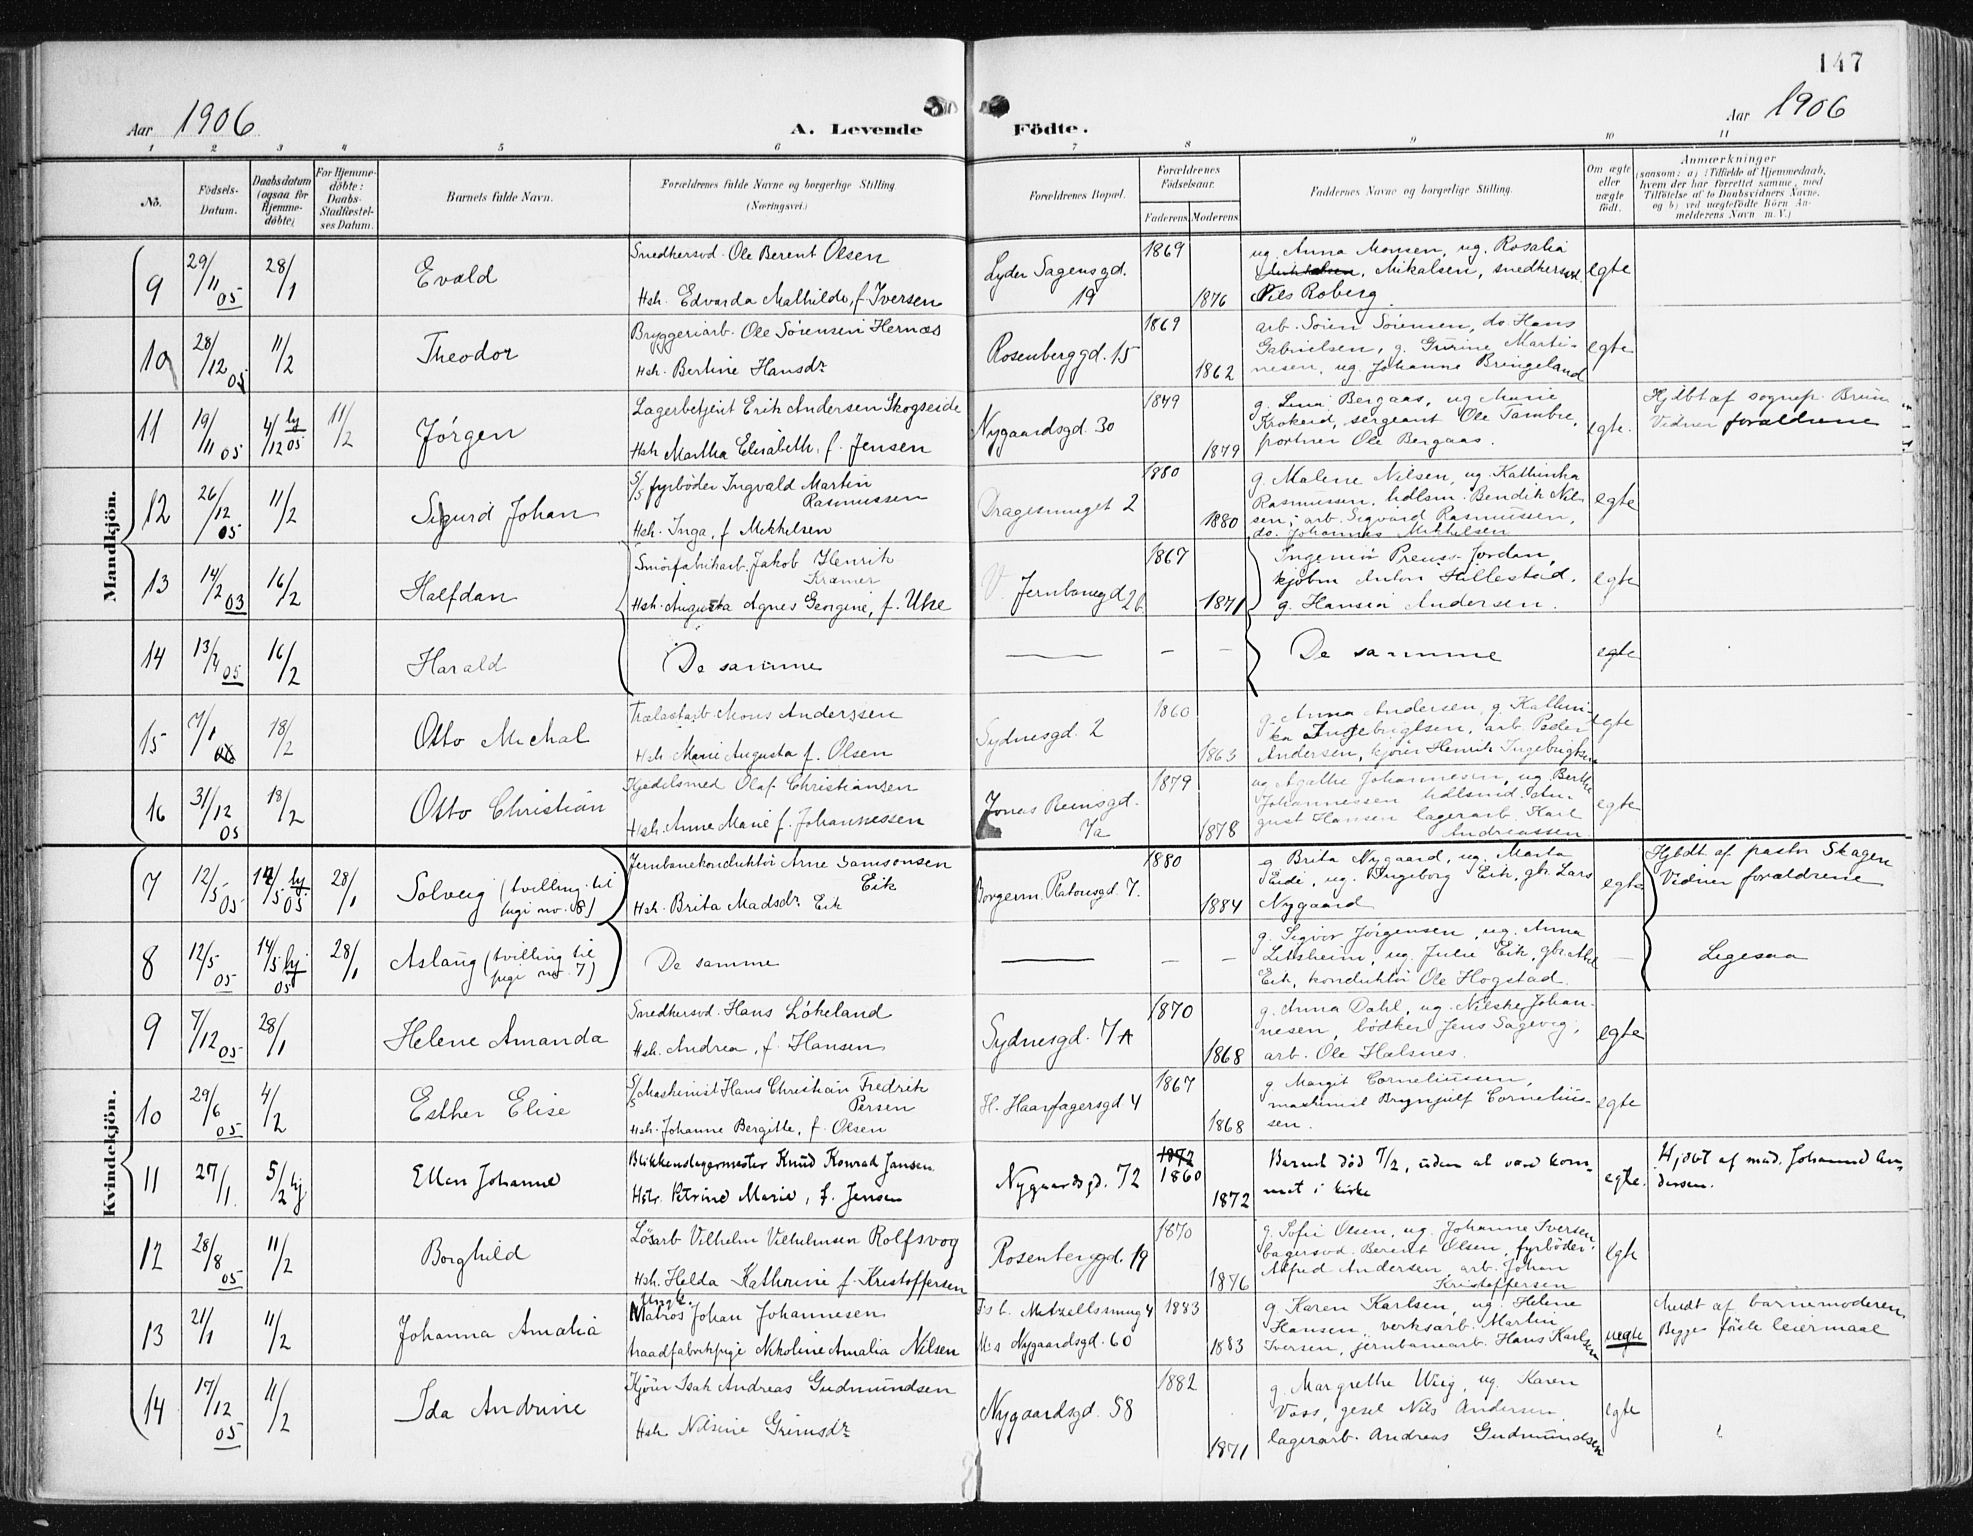 147
Aar 1906
A. Levende Födte.
Aar 1906
1 2 3 4 5 6 7 8 9 10 11
No.
Födsels-Datum.
Daabsdatum (ogsaa for Hjemme-döbte)
For Hjemme-döbte: Daabs-Stadfæstel-ses Datum.
Barnets fulde Navn.
Forældrenes fulde Navne og borgerlige Stilling (Næringsvei.)
Forældrenes Bopæl.
Forældrenes Födselsaar.
Faderens Moderens
Faddernes Navne og borgerlige Stilling.
Om ægte eller uægte födt.
Anmærkninger
(saasom: a) i Tilfælde af Hjemmedaab, hvem der har forrettet samme, med Tilföielse af to Daabsvidners Navne, og b) ved uægtefödte Börn An-melderens Navn m. V.)
Mandkjön.
9 29/11 05 28/1 Evald
Snedkersvd. Ole Berent Olsen
Hsh. Edvarda Mathilde, f. Iversen
Lyder Sagensgd. 19
1869 1876
ug. Anna Monsen, ug. Rosalia
Mikalsen, snedkersvd.
Nils Roberg.
egte
10 28/12 05 11/2 Theodor
Bryggeriarb. Ole Sörensen Hernæs
Hsh. Bertine Hansdr
Rosenberggd. 15
1869 1862
arb. Sören Sörensen, do. Hans
Gabrielsen, g. Gurine Marti-
nesen, ug. Johanne Bringeland
egte
11 19/11 05 4/12 05 hj 11/2 Jörgen
Lagerbetjent Erik Andersen Skogseide
Hsh. Martha Elisabeth, f. Jensen
Nygaardsgd. 30
1849 1879
g. Lina Bergaas, ug. Marie
Krokeid, sergeant Ole Tambre,
portner Ole Bergaas.
egte.
Hjdbt af sognepr. Bruun
Vidner forældrene
12 26/12 05 11/2 Sigurd Johan
S/S fyrböder Ingvald Martin
Rasmussen
Hsh. Inga, f. Mikkelsen
Dragesmuget 2
1880 1880
g. Malene Nilsen, ug. Kathinka
Rasmussen, hdlsm. Bendik Nil-
sen, arb. Sigvard Rasmussen,
do. Johannes Mikkelsen
egte
13 14/2 03 16/2 Halfdan
Smörfabrikarb. Jakob Henrik
Kramer
Hsh. Augusta Agnes Georgine, f. Uhe
V. Jernbanegd 26
1867 1871
Ingeniör Preuss-Jordan,
kjöbm Anton Hillestad,
g. Hansia Andersen.
egte
14 13/4 05 16/2 Harald
De samme
— — —
De samme
egte
15 7/1 18/2 Otto Michal
Trælastarb Mons Anderssen
Hsh. Marie Augusta f. Olsen
Sydnesgd. 2
1860 1863
g. Anna Andersen, g. Kathin-
ka Ingebrigtsen, arb. Peder
Andersen, kjörer Henrik Ingebrigtsen
egte
16 31/12 05 18/2 Otto Christian
Kjedelsmed Olaf Christiansen
Hsh. Anne Marie f. Johannessen
Jonas Reinsgd. 7a
1879 1878
ug. Agathe Johannesen, ug. Berthe
Johannessen hdlsmd. Au-
gust Hansen lagerarb. Karl
Andreassen
egte
Kvindekjön.
7 12/5 05 14/5 05 hj 28/1 Solveig (tvilling til
pige no. 8)
Jernbanekonduktör Arne Samsonsen
Eik
Hsh. Brita Madsdr Eik
Borgerm. Platousgd. 7.
1880 1884
g. Brita Nygaard, ug. Marta
Eide, ug. Ingeborg Eik, gbr. Lars
Nygaard
egte
Hjdbt. af pastor Skagen
Vidner forældrene
8 12/5 05 14/5 hj 05 28/1 Aslaug (tvilling til
pige no. 7)
De samme
— — —
g. Sigvor Jörgensen, ug. Anna
Litsheim, ug. Julie Eik, gbr.
Eik, konduktör Ole Hogstad.
—
Ligesaa
9 7/12 05 28/1 Helene Amanda
Snedkersvd. Hans Lökeland
Hsh. Andrea, f. Hansen
Sydnesgd. 7A
1870 1868
g. Anna Dahl, ug. Nilske Johan-
nesen, bödker Jens Sagevig,
arb. Ole Halsnes.
egte
10 29/6 05 4/2 Esther Elise
S/S Maskinist Hans Christian Fredrik
Persen
Hsh. Johanne Bergitte, f. Olsen
H. Haarfagersgd 4
1867 1868
g. Margit Corneliussen,
maskinist Brynjulf Cornelius-
sen.
egte
11 27/1. 5/2 hj Ellen Johanne
Blikkenslagermester Knud Konrad Jansen
Hstr. Petrine Marie, f. Jensen
Nygaardsgd. 72
1872 1860 1872
Barnet död 7/2, uden at være kom-
met i kirke
egte.
Hjdbt af mad. Johanne An-
dersen.
12 28/8 05 11/2 Borghild
Lösarb Vilhelm Vilhelmsen Rolfsvog
Hsh. Helda Kathrine f. Kristoffersen
Rosenberggd. 19
1870 1876
g. Sofie Olsen, ug. Johanne Iversen
bagersvd. Berent Olsen, fyrböder
Alfred Andersen, arb. Johan
Kristoffersen
egte
13 21/1 11/2 Johanna Amalia
Ungk.
Matros Johan Johannesen
traadfabrikpige Nikoline Amalia Nilsen
F:s b. Metzellsmug 4
M:s Nygaardsgd. 60
1883 1883
g. Karen Karlsen, ug. Helene
Hansen, verksarb. Martin
Iversen, jernbanearb. Hans Karlsen
uegte
Anmdt af barnemoderen
Begges förste leiermaal
14 17/12 05 11/2 Ida Andrine
Kjörer Isak Andreas Gudmundsen
Hsh Nilsine Grimsdr
Nygaardsgd. 58
1882 1871
g. Margrethe Wiig, ug. Karen
Voss, gesel Nils Andersen
lagerarb. Andreas Gudmundsen
egte